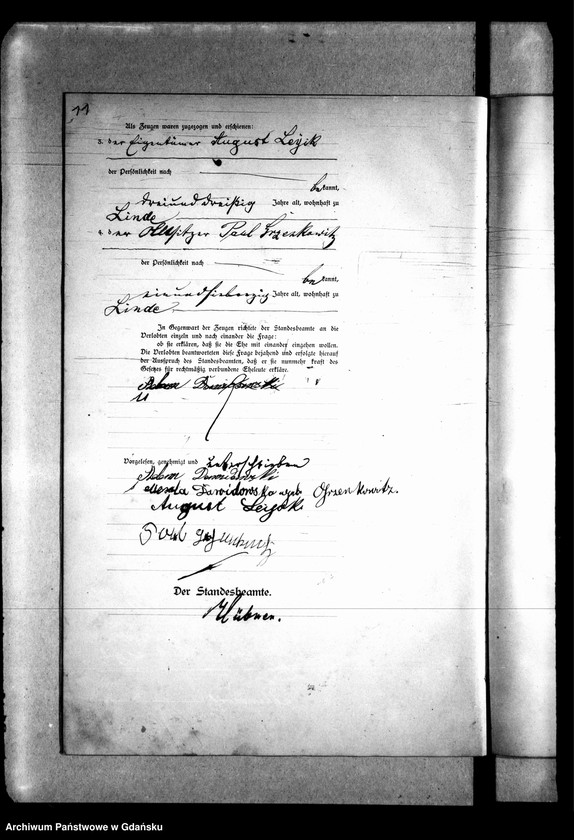 11
Als Zeugen waren zugezogen und erschienen:
3. der Eigentümer August Leyk
der Persönlichkeit nach
bekannt,
dreiunddreißig Jahre alt, wohnhaft zu
Linde
4. der Altsitzer Paul Grzenkowitz
der Persönlichkeit nach
bekannt,
einundsiebenzig Jahre alt, wohnhaft zu
Linde
In Gegenwart der Zeugen richtete der Standesbeamte an die
Verlobten einzeln und nach einander die Frage:
ob sie erklären, daß sie die Ehe mit einander eingehen wollen.
Die Verlobten beantworteten diese Frage bejahend und erfolgte hierauf
der Ausspruch des Standesbeamten, daß er sie nunmehr kraft des
Gesetzes für rechtmäßig verbundene Eheleute erkläre.
Vorgelesen, genehmigt und unterschrieben
Adam Dawidowski
Dawidowska geb. Grzenkowitz.
August Leyk
Paul
Der Standesbeamte.
Hübner.
Archiwum Państwowe w Gdańsku